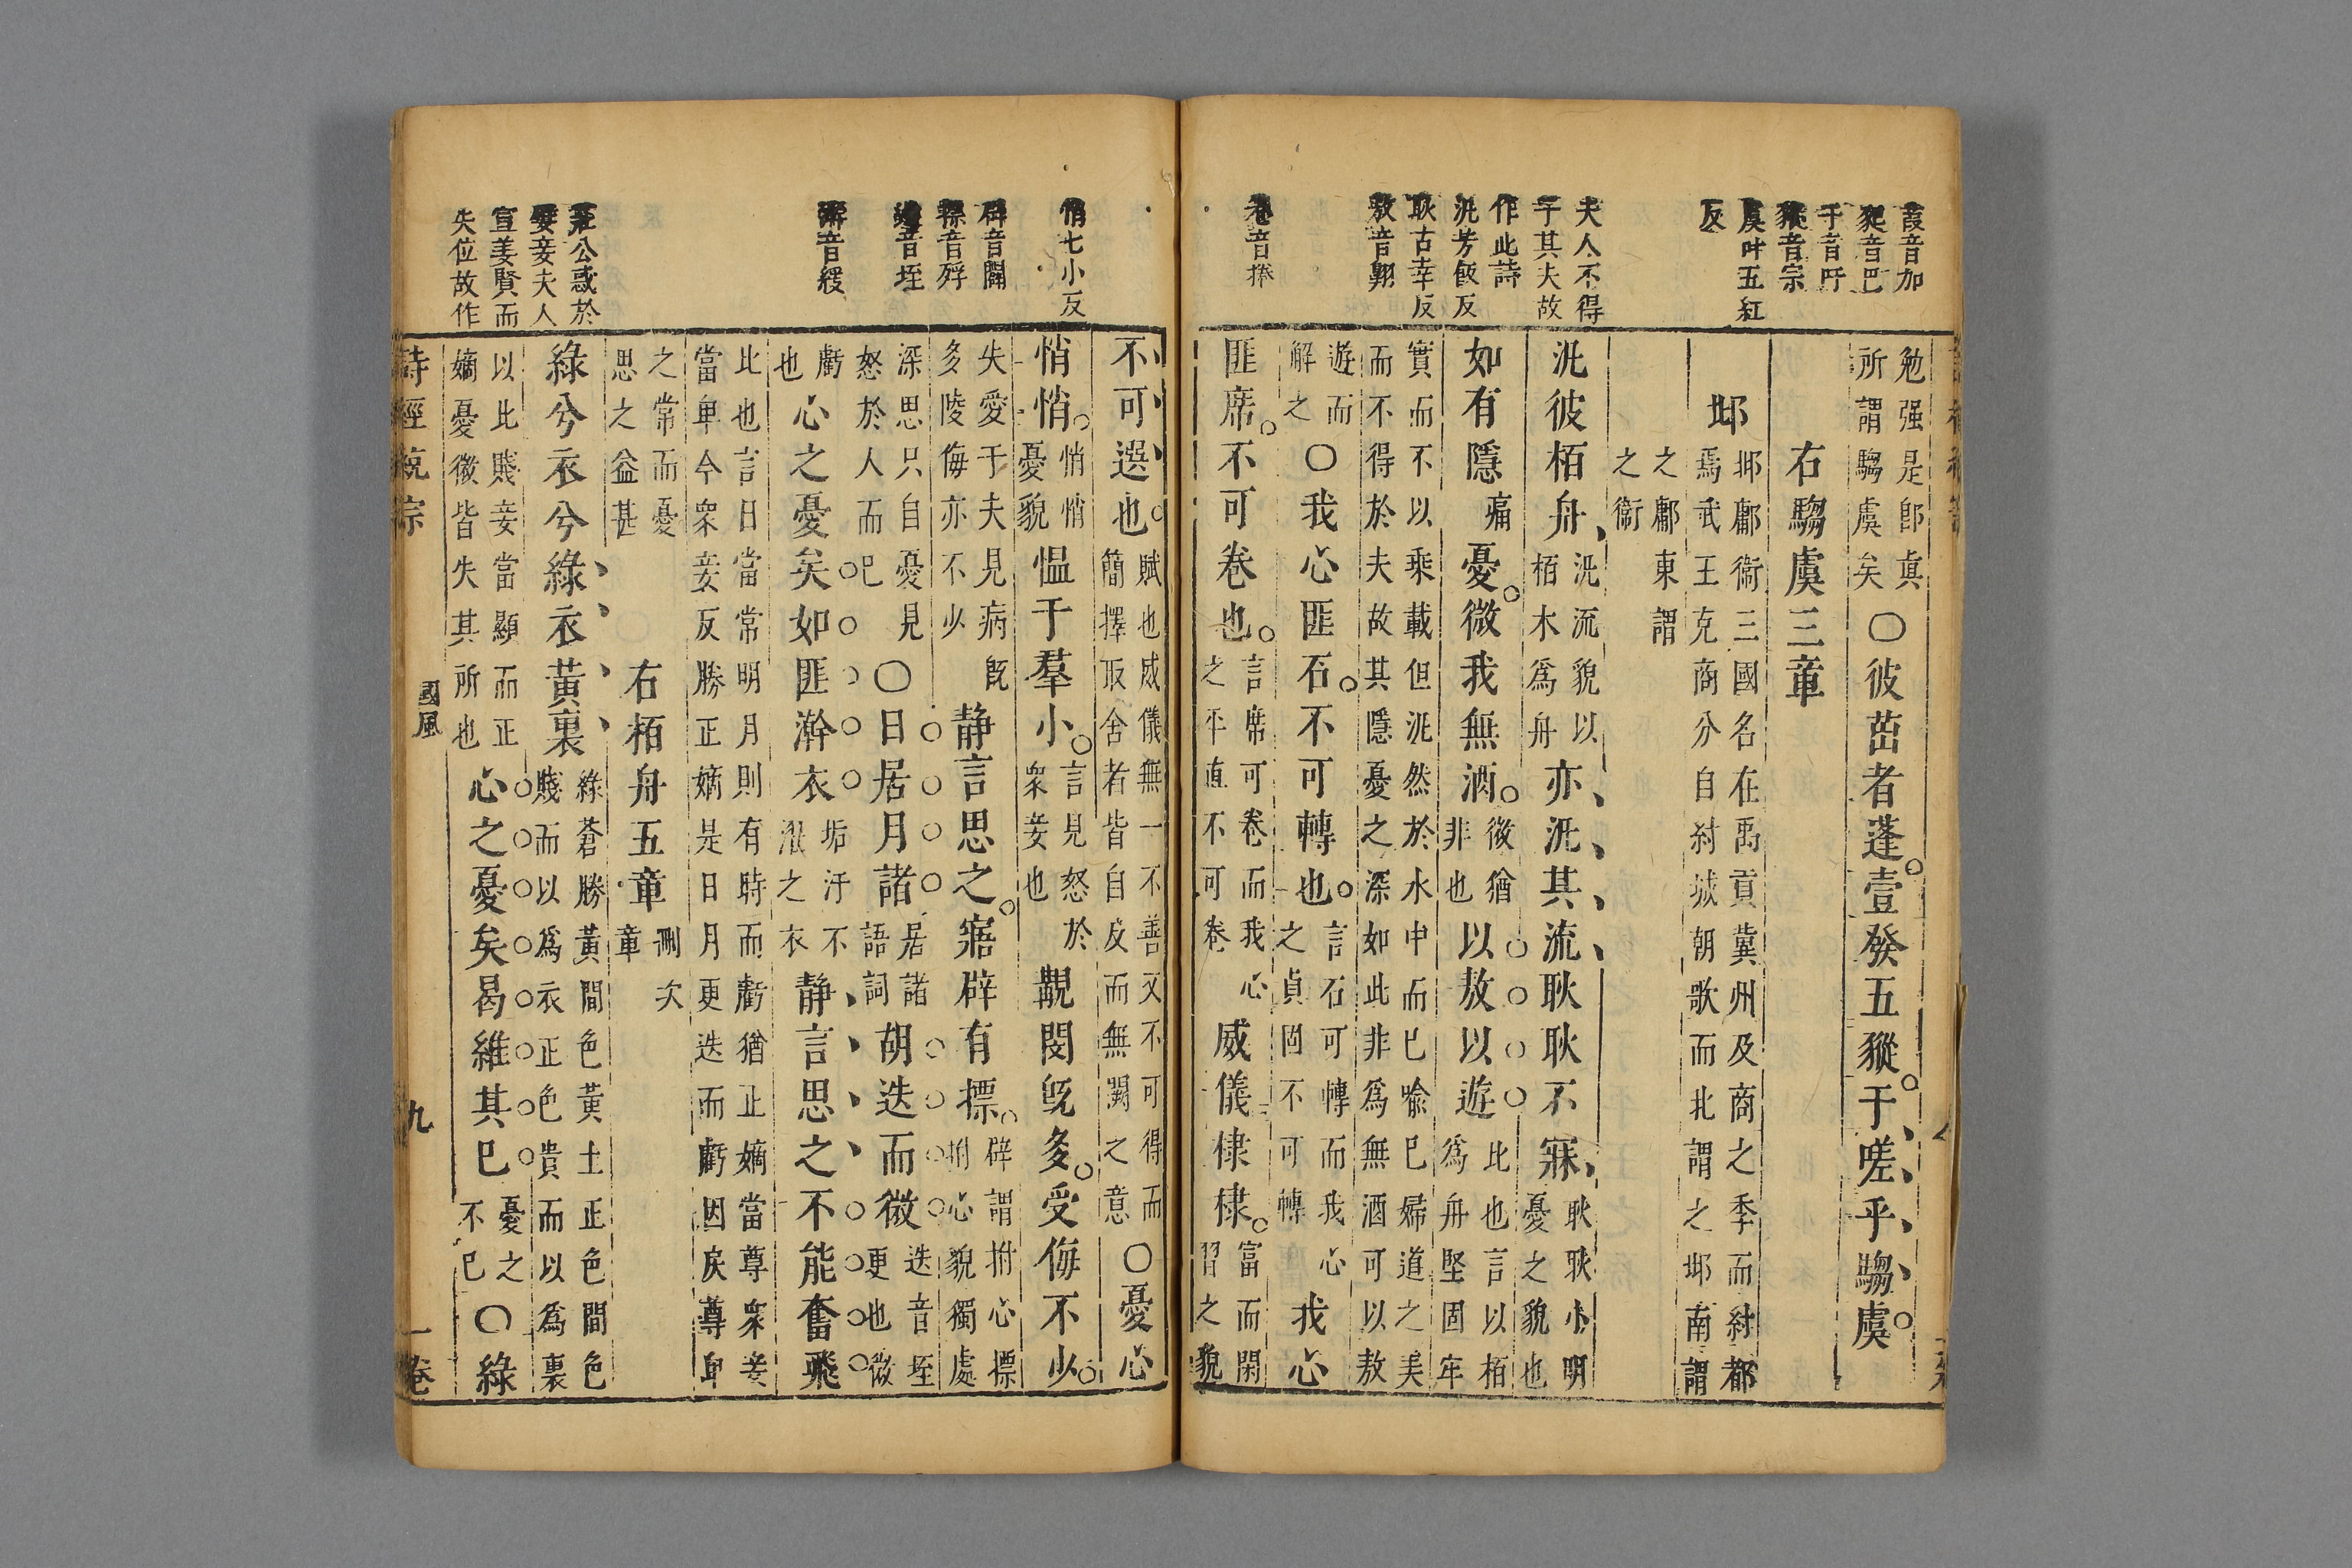 葭音加
豝音巴
于音吁
豵音宗
虞叶五紅
反
夫人不得
于其夫故
作此詩
汎芳飯反
耿古幸反
敖音翺
卷音捲
勉强是卽眞
所謂騶虞矣
〇彼茁者蓬壹發五豵于嗟乎騶虞
右騶虞三章
邶
邶鄘衞三國名在禹貢冀州及商之季而紂都
焉武王克商分自紂城朝歌而北謂之邶南謂
之鄘東謂
之衞
汎彼栢舟
汎流貌以
栢木爲舟
亦汎其流耿耿不寐
耿耿小明
憂之貌也
如有隱
痛
憂微我無酒
微猶
非也
以敖以遊
比也言以栢
爲舟堅固牢
實而不以乘載但汎然於水中而已喩已婦道之美
而不得於夫故其隱憂之深如此非爲無酒可以敖
遊而
解之
〇我心匪石不可轉也
言石可轉而我心
之貞固不可轉
我心
匪席不可卷也
言席可卷而我心
之平直不可卷
威儀棣棣
富而閑
習之貌
悄七小反
辟音闢
摽音殍
迭音垤
澣音緩
莊公惑於
嬖妾夫人
宣姜賢而
失位故作
不可選也
賦也威儀無一不善又不可得而
簡擇取舍者皆自反而無闕之意
〇憂心
悄悄
悄悄
憂貌
慍于羣小
言見怒於
衆妾也
覯閔旣多受侮不少
失愛于夫見病旣
多陵侮亦不少
静言思之寤辟有摽
辟謂拊心摽
拊心貌獨處
深思只自憂見
怒於人而已
〇日居月諸
居諸
語詞
胡迭而微
迭音垤
更也微
虧
也
心之憂矣如匪澣衣
垢汙不
濯之衣
静言思之不能奮飛
比也言日當常明月則有時而虧猶正嫡當尊衆妾
當卑今衆妾反勝正嫡是日月更迭而虧因戾尊卑
之常而憂
思之益甚
右栢舟五章
删次
章
綠兮衣兮綠衣黃裏
綠蒼勝黃間色黃土正色間色
賤而以爲衣正色貴而以爲裏
以此賤妾當顯而正
嫡憂微皆失其所也
心之憂矣曷維其已
憂之
不已
〇綠
詩經統宗
國風
九
一卷